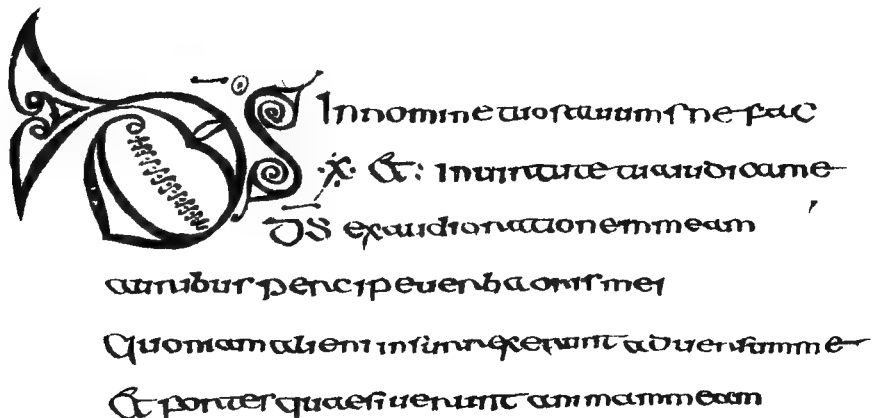 DS In nomine tuo saluum me fac
·x· Et: in uirtute tua iudica me
DS exaudi orationem meam
auribus percipe uerba oris mei
Quoniam alieni insurrexerunt aduersum me
Et fortes quaesiuerunt animam meam